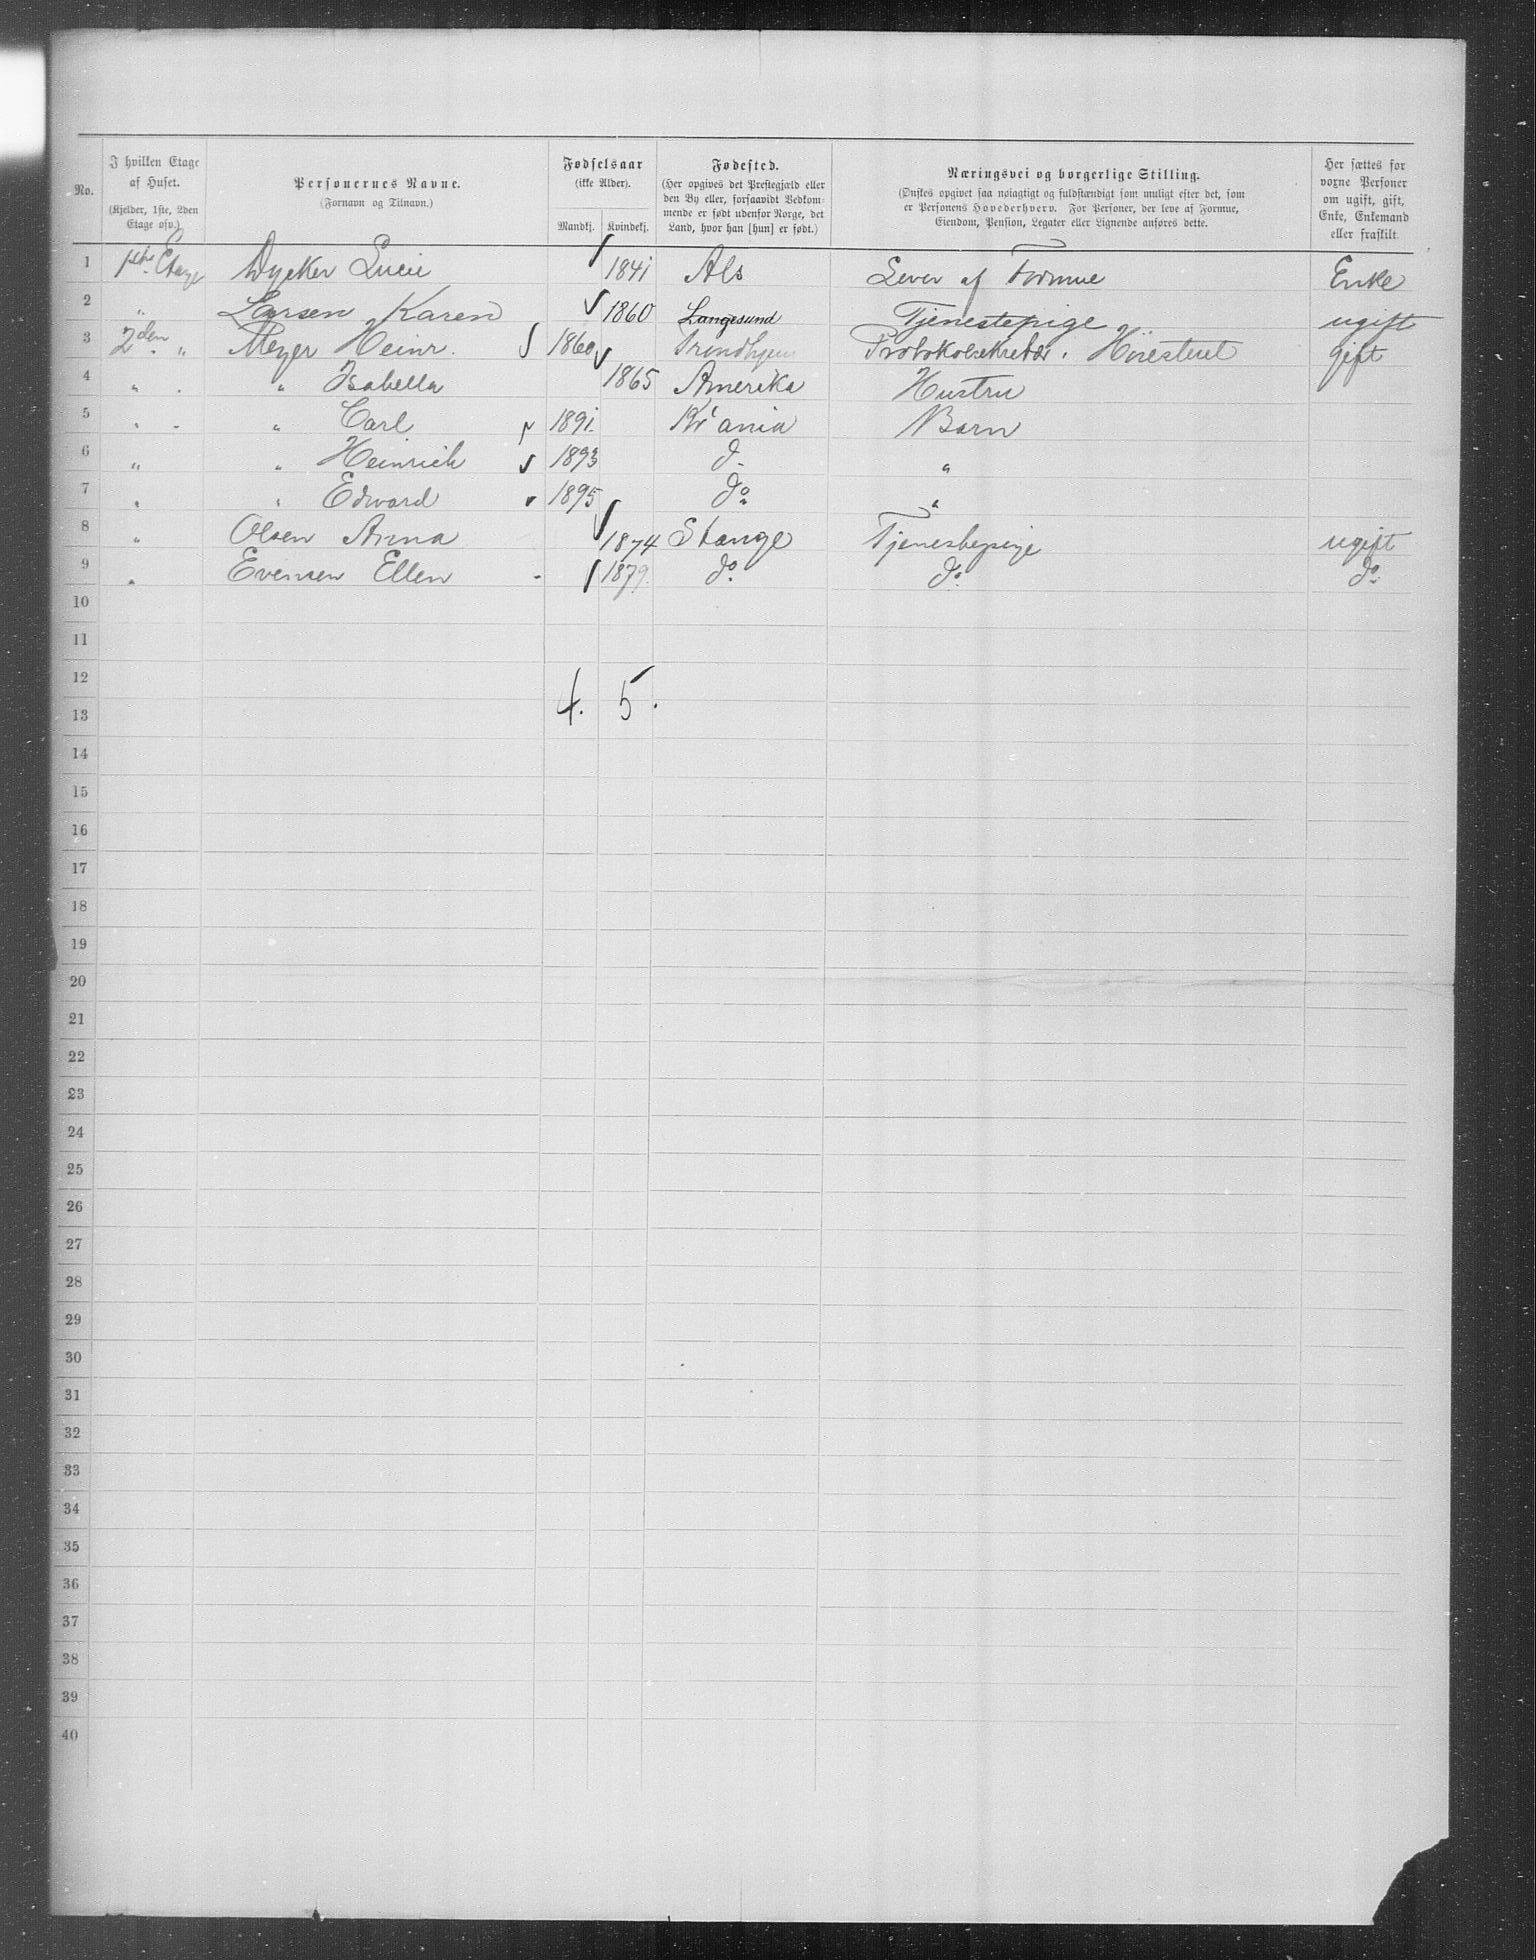 No. | I hvilken Etage af Huset. (Kjelder, 1ste, 2den Etage osv.) | Personernes Navne. (Fornavn og Tilnavn.) | Fødselsaar (ikke Alder). Mandkj. | Kvindekj. | Fødested. (Her opgives det Prestegjæld eller den By eller, forsaavidt Vedkommende er født udenfor Norge, det Land, hvor han [hun] er født.) | Næringsvei og borgerlige Stilling. (Ønskes opgivet saa nøiagtigt og fuldstændigt som muligt efter det, som er Personens Hovederhverv. For Personer, der leve af Formue, Eiendom, Pension, Legater eller Lignende anføres dette.) | Her sættes for voxne Personer om ugift, gift, Enke, Enkemand eller fraskilt
1 | 1ste Etage | Dycker Lucie | | 1841 | Als | Lever af Formue | Enke
2 | " | Larsen Karen | | 1860 | Langesund | Tjenestepige | ugift
3 | 2den " | Meyer Heinr. | 1860 | | Trondhjem | Protokolsekretær. Høiesteret | gift
4 | " . | " Isabella | | 1865 | Amerika | Hustru
5 | " . | " Carl | 1891. | | Kr'ania | Barn
6 | " | " Heinrich | 1893 | | do | "
7 | " | " Edward | 1895 | | do | "
8 | " | Olsen Anna | | 1874 | Stange | Tjenestepige | ugift
9 | " | Evensen Ellen | | 1879. | do | do | do
10
11
12
4. 5.
13
14
15
16
17
18
19
20
21
22
23
24
25
26
27
28
29
30
31
32
33
34
35
36
37
38
39
40